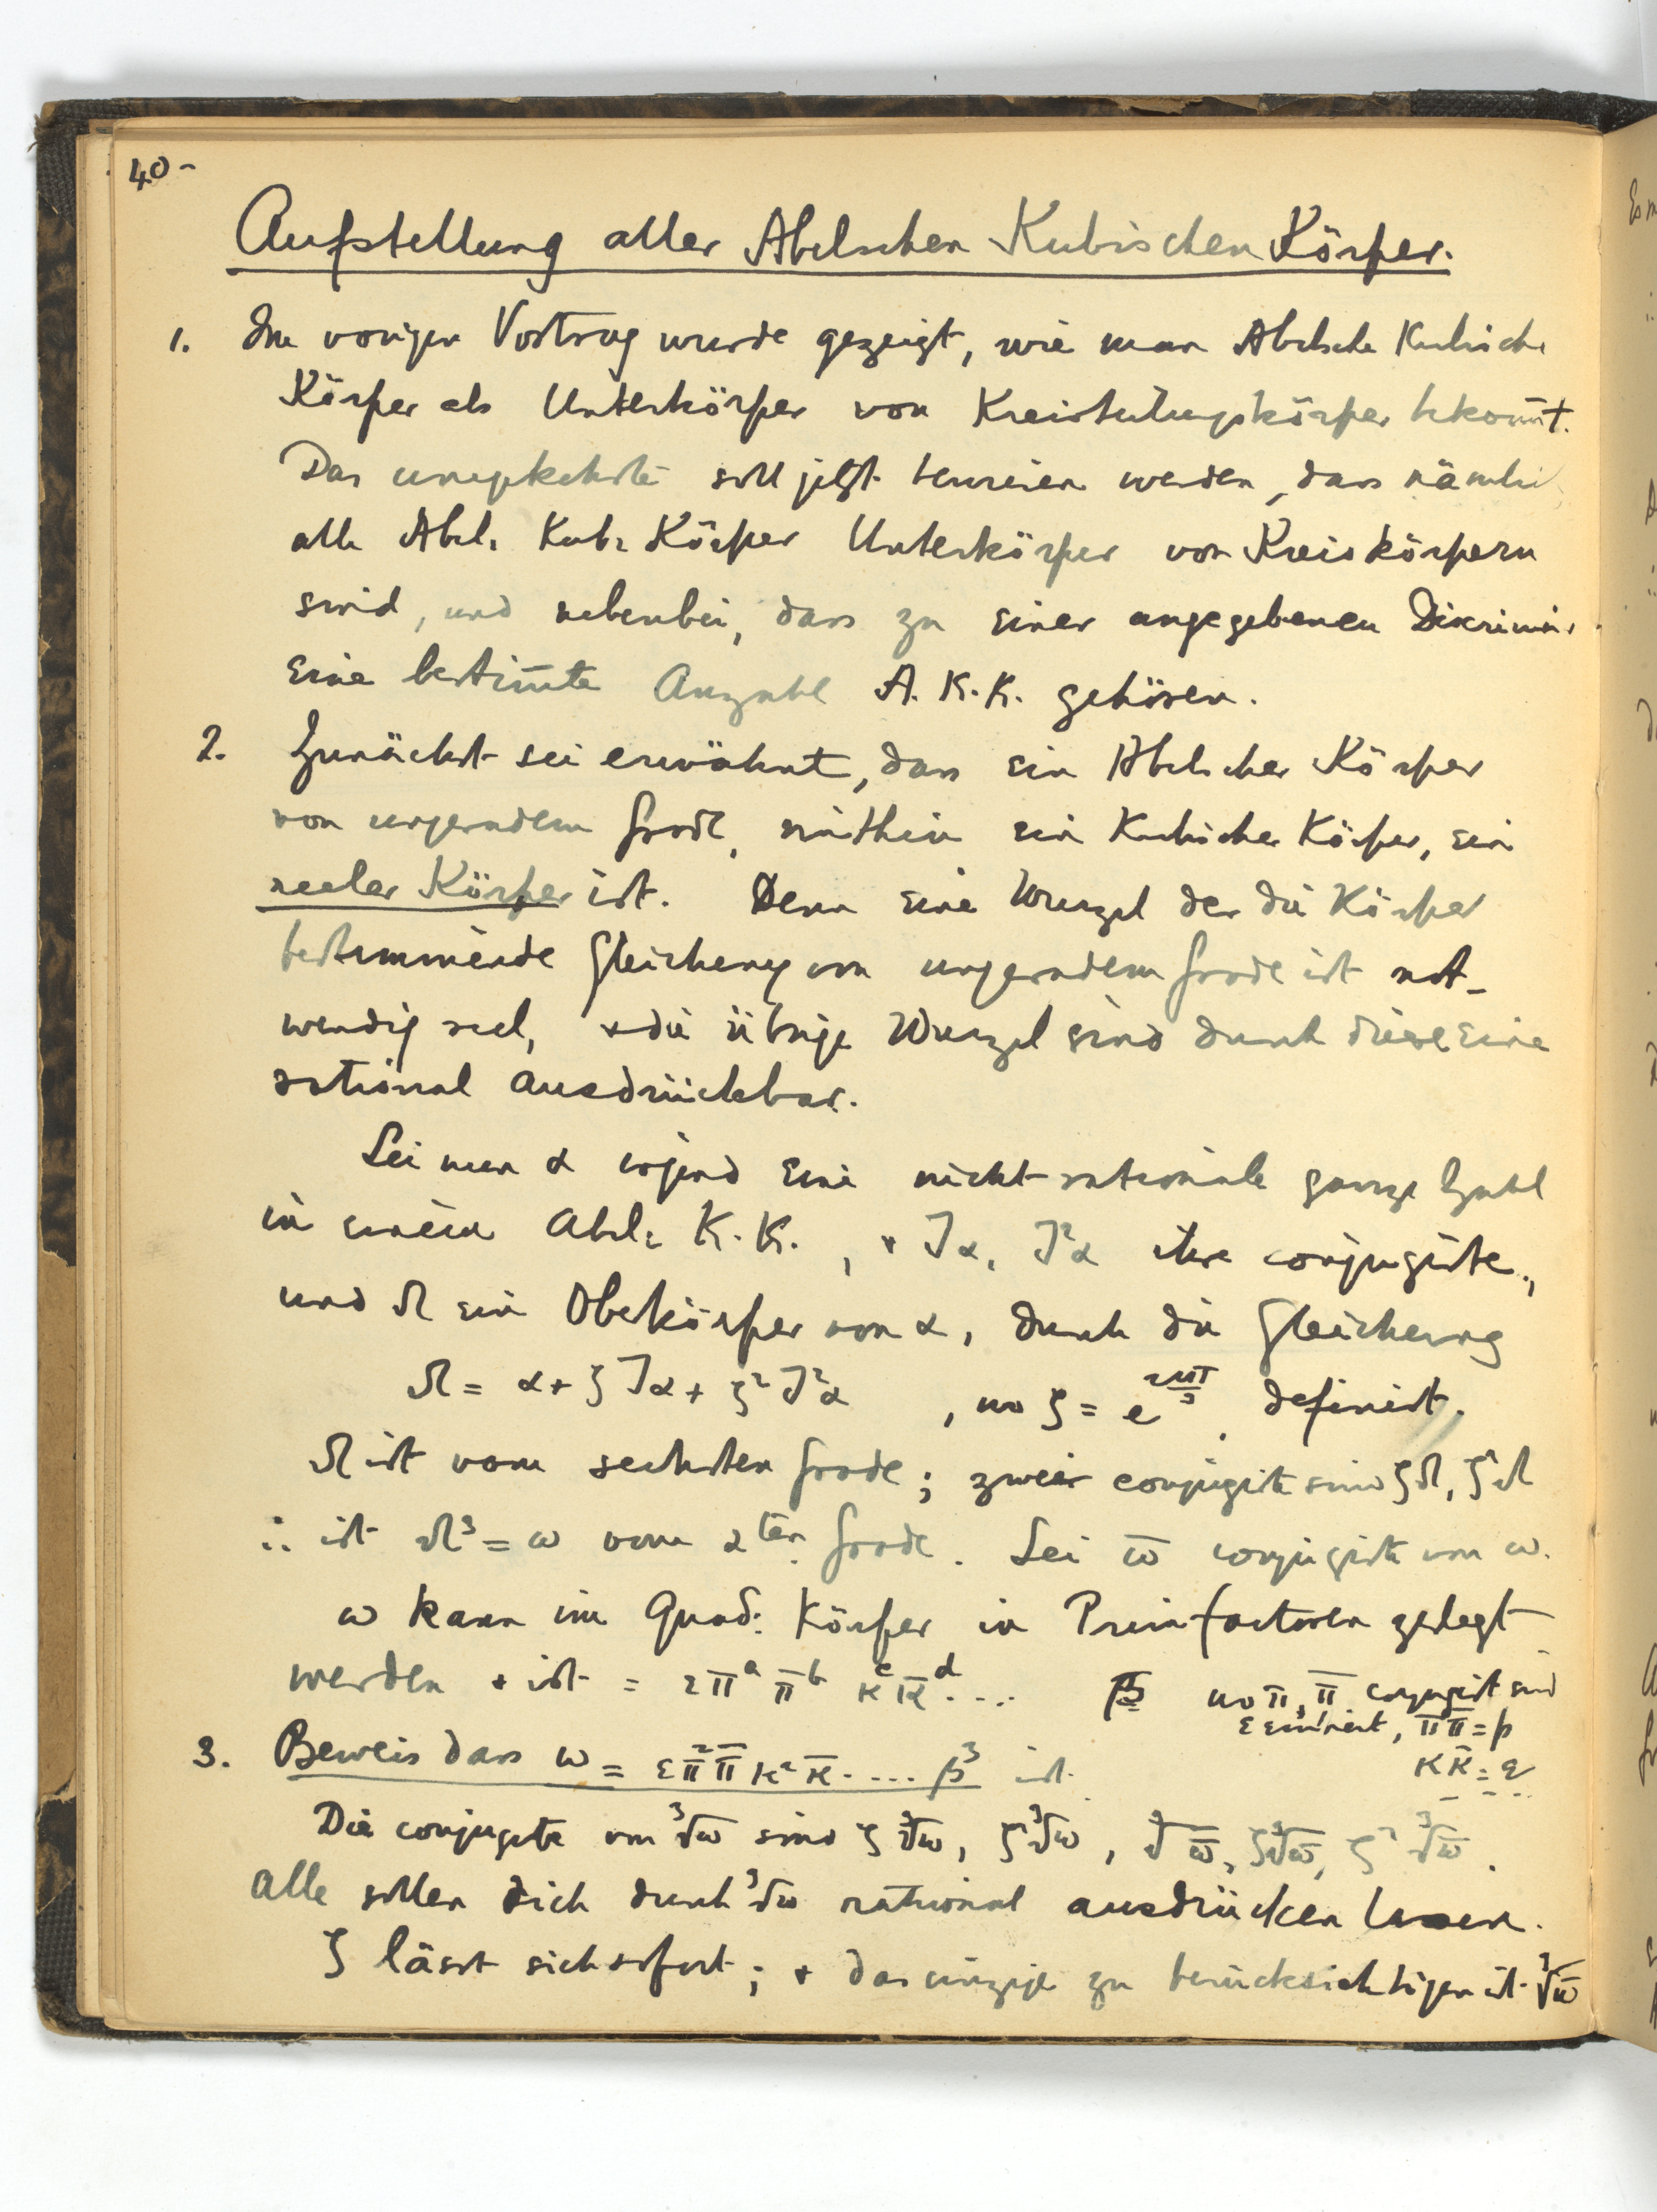 40-
Aufstellung aller Abelschen Kubischen Körper.
1. Im vorigen Vortrag wurde gezeigt, wie man Abelsche Kubische
Körper als Unterkörper von Kreisteilungskörper bekom̄t.
Das umgekehrte soll jetzt bewiesen werden, dass nämli
alle Abel. Kub. Körper Unterkörper von Kreiskörpern
sind, und nebenbei, dass zu einer angegebenen Diskrimin
eine bestim̄te Anzahl A. K. K. gehören.
2. Zunächst sei erwähnt, dass ein Abelscher Körper
von ungeradem Grade, mithin ein Kubischer Körper, ein
reeler Körper ist. Denn eine Wurzel der die Körper
bestimmende Gleichung von ungeradem Grade ist not-
wendig reel, + die übrige Wurzel sind durch diese eine
rational ausdrückbar.
Sei nun α irgend eine nicht-rationale ganze Zahl
in einem Abel. K. K., + Jα, J²α ihre conjugirte,
und Ω ein Oberkörper von α, durch die Gleichung
Ω = α + ζJα + ζ²J²α, wo ζ = e^{2πi/3} definirt.
Ω ist vom sechsten Grade; zwei conjugirte sind ζΩ, ζ²Ω
∴ ist Ω³ = ω vom 2ten Grade. Sei ω̄ conjugirte von ω.
ω kann im Quad. Körper in Primfactoren zerlegt
werden + ist = επ^a π̄^b κ^c κ̄^d .... wo π, π̄ conjugirt sind
ε Einheit, ππ̄ = p
κκ̄ = q
3. Beweis dass ω = επ²π̄κ²κ̄ .... β³ ist.
Die conjugirte von ³√ω sind ζ³√ω, ζ²³√ω, ³√ω̄, ζ³√ω̄, ζ²³√ω̄.
Alle sollen sich durch ³√ω rational ausdrücken lassen.
ζ lässt sich sofort; + das einzige zu berücksichtigen ist ³√ω̄